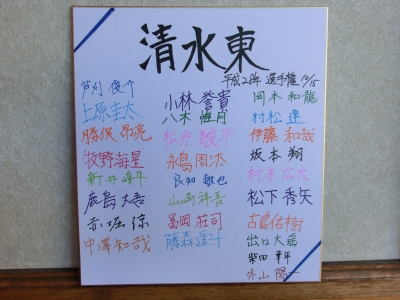 清水東
平成26年 選手権 10/15
芦刈 俊介
上原 圭太
勝俣 昂亮
牧野 海星
新井 峰平
鹿島 大吾
赤堀 涼
中澤 知哉
小林 誉貴
八木 惟月
松永 颯平
永島 周汰
良知 敏也
山崎 祥吾
冨岡 荘司
藤森 遥斗
岡本 和龍
村松 建
伊藤 和哉
坂本 翔
杉本 宏大
松下 秀矢
古島 佑樹
出口 大瑶
柴田 幸平
外山 陽一